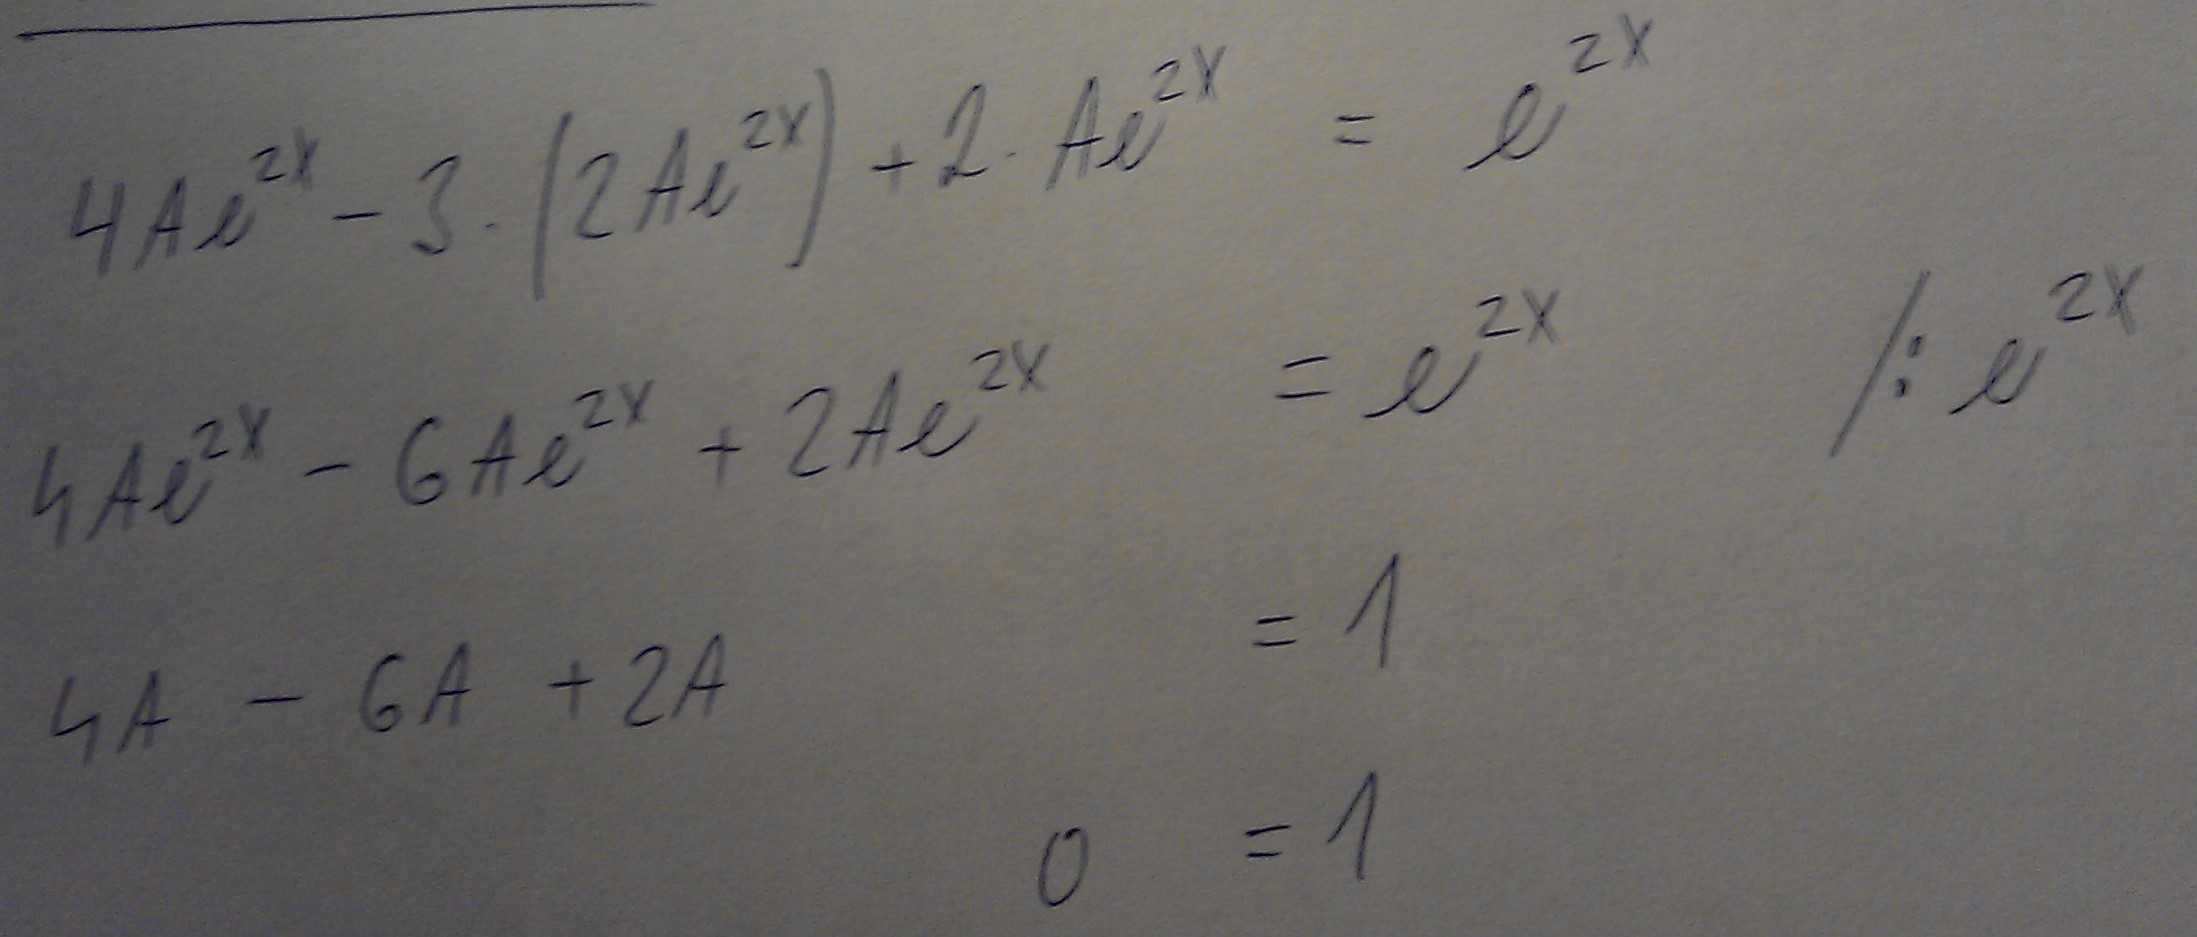 4Ae^{2x} - 3 · (2Ae^{2x}) + 2 · Ae^{2x} = e^{2x}
4Ae^{2x} - 6Ae^{2x} + 2Ae^{2x} = e^{2x} /: e^{2x}
4A - 6A + 2A = 1
0 = 1